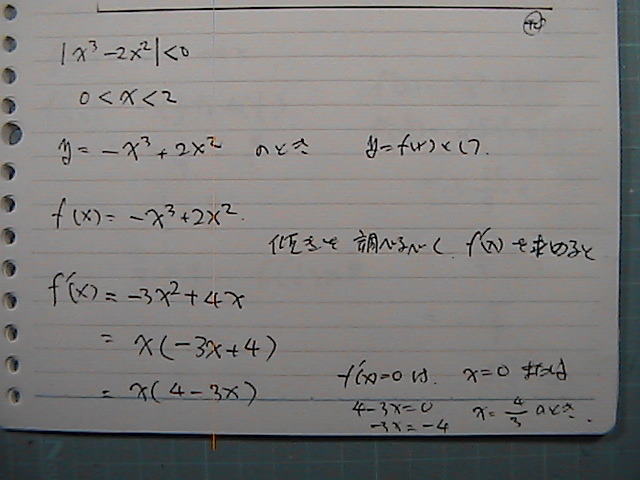 |x³-2x²|<0
0<x<2
y=-x³+2x² のとき y=f(x)として.
f(x)=-x³+2x².
傾きを調べるべく、f'(x)を求めると
f'(x)=-3x²+4x
=x(-3x+4)
=x(4-3x)
f'(x)=0は. x=0または
4-3x=0 x=4/3のとき.
-3x=-4